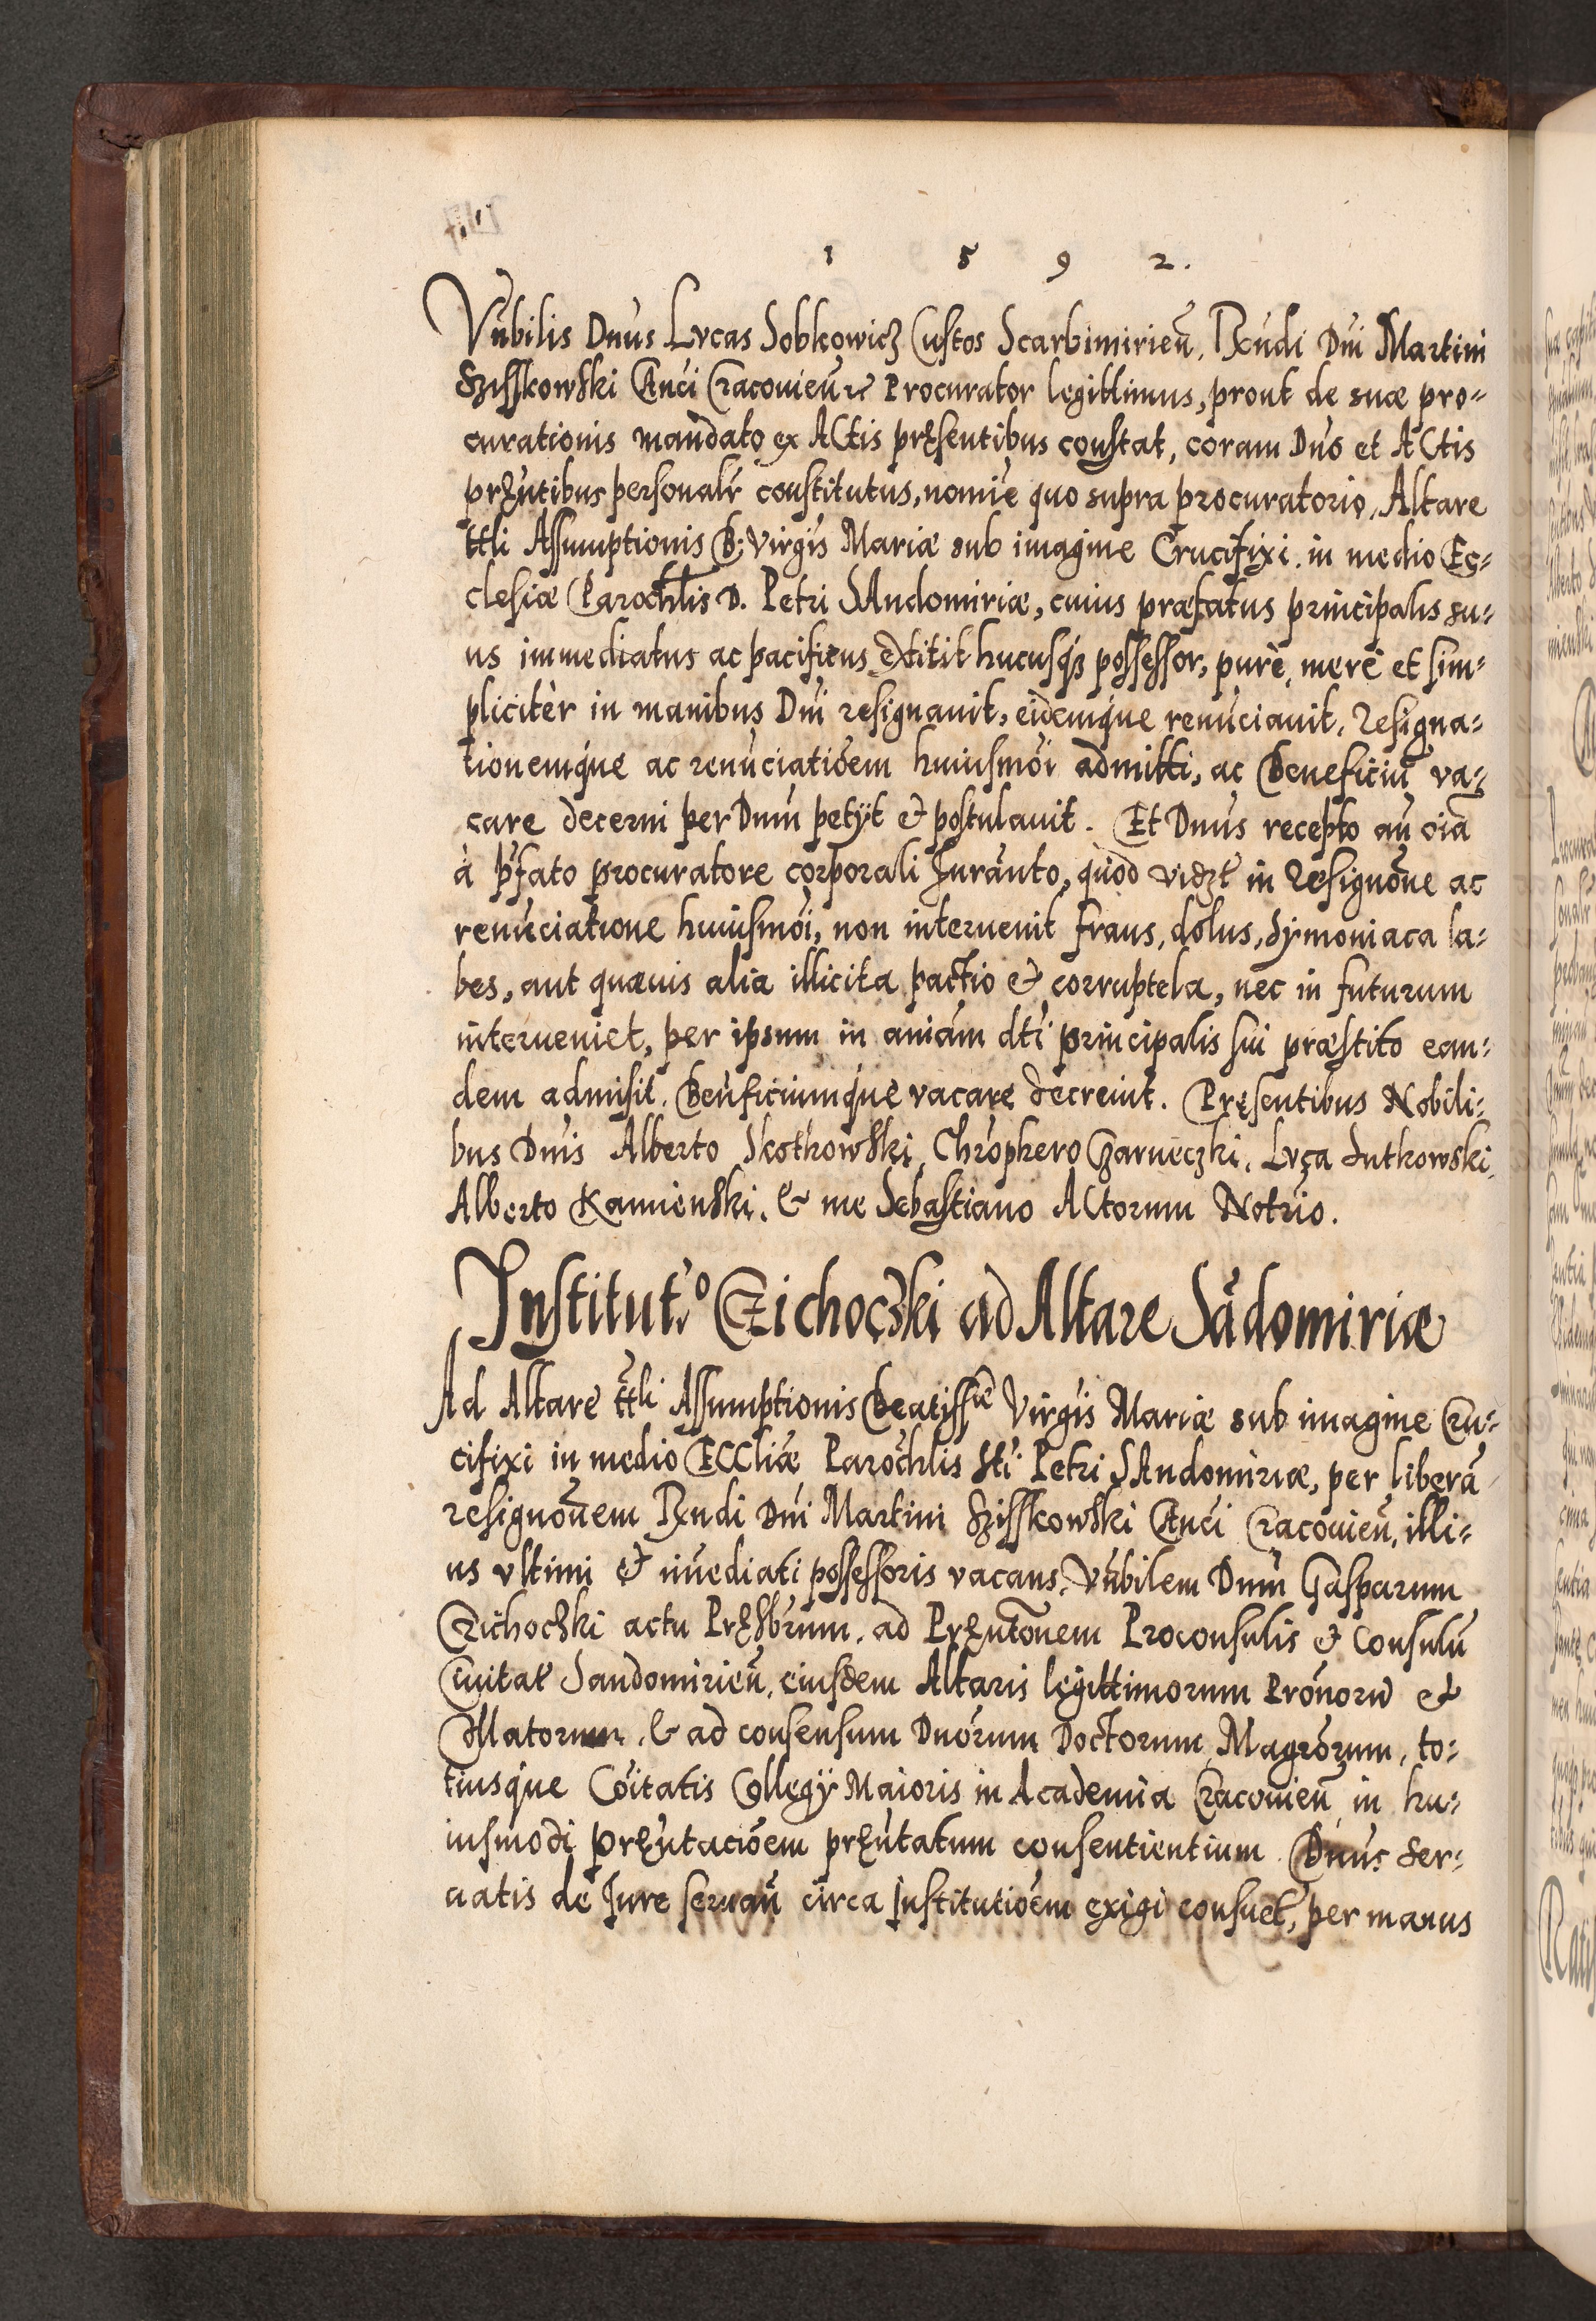 1 5 9 2.
Vn̄bilis Dnus Lvcas Sobkowicz Custos Scarbimirien̄, Rxndi Dni Martini
Szisskowski Cānci Cracouien̄ &c Procurator legittimus, prout de suæ pro=
curationis mandato ex ACtis pręsentibus constat, coram Dnō et ACtis
prȩn̄tibus personalr̄ constitutus, nomīe quo supra procuratorio, Altare
ttli Assumptionis B: Virgīs Mariæ sub imagine Crucifixi in medio Ec=
clesiæ Parochlis D. Petri SAndomiriæ, cuius præfatus principalis su=
us immediatus ac pacificus extitit hucusq3 possessor, purè, merè et sim=
pliciter in manibus Dni resignauit, eidemque renūciauit, Resigna=
tionemque ac renūciatiōem huiusmōi admitti, ac Beneficiū va=
care decerni per Dnum petÿt & postulauit. Et Dnus recepto an̄ oia
à pfato procuratore corporali Iurān̄to, quod vidzt in Resignōne ac
renūciatione huiusmōi, non interuenit fraus, dolus, Symoniaca la=
bes, aut quæuis alia illicita pactio & corruptela, nec in futurum
interueniet, per ipsum in aniam dti principalis sui præstito ean=
dem admisit. Ben̄ficiumque vacare decreuit. Pręsentibus Nobili=
bus Dnis Alberto Skotkowski, Chrophero Czarneczki, Lvca Lutkowski,
Alberto Kamienski, & me Sebastiano ACtorum Notrio.
Institut.º Czichoczki ad Altare Sādomiriæ
Ad Altare ttli Assumptionis Beatissæ Virgīs Mariæ sub imagine Cru=
cifixi in medio ECCliæ Parochlis Sti Petri SAndomiriæ, per liberā
resignōnem Rxndi Dni Martini Szisskowski Cānci Cracouien̄, illi=
us vltimi & imediati possessoris vacans, Vn̄bilem Dnum Gasparum
Czichoczki actu Pręsbrum, ad Prȩn̄tōnem Proconsulis & Consulū
Ciuitat̄ Sandomirien̄, eiusdem Altaris legittimorum Prōnorū &
Collatorum, & ad consensum Dnōrum Doctorum Magrōrum, to=
tiusque Cōitatis Collegÿ Maioris in Academia Cracouien̄ in hu=
iusmodi prȩn̄taciōem prȩn̄tatum consentientium. Dnus ser=
uatis de Iure seruan̄ circa Institutiōem exigi consuet, per manus